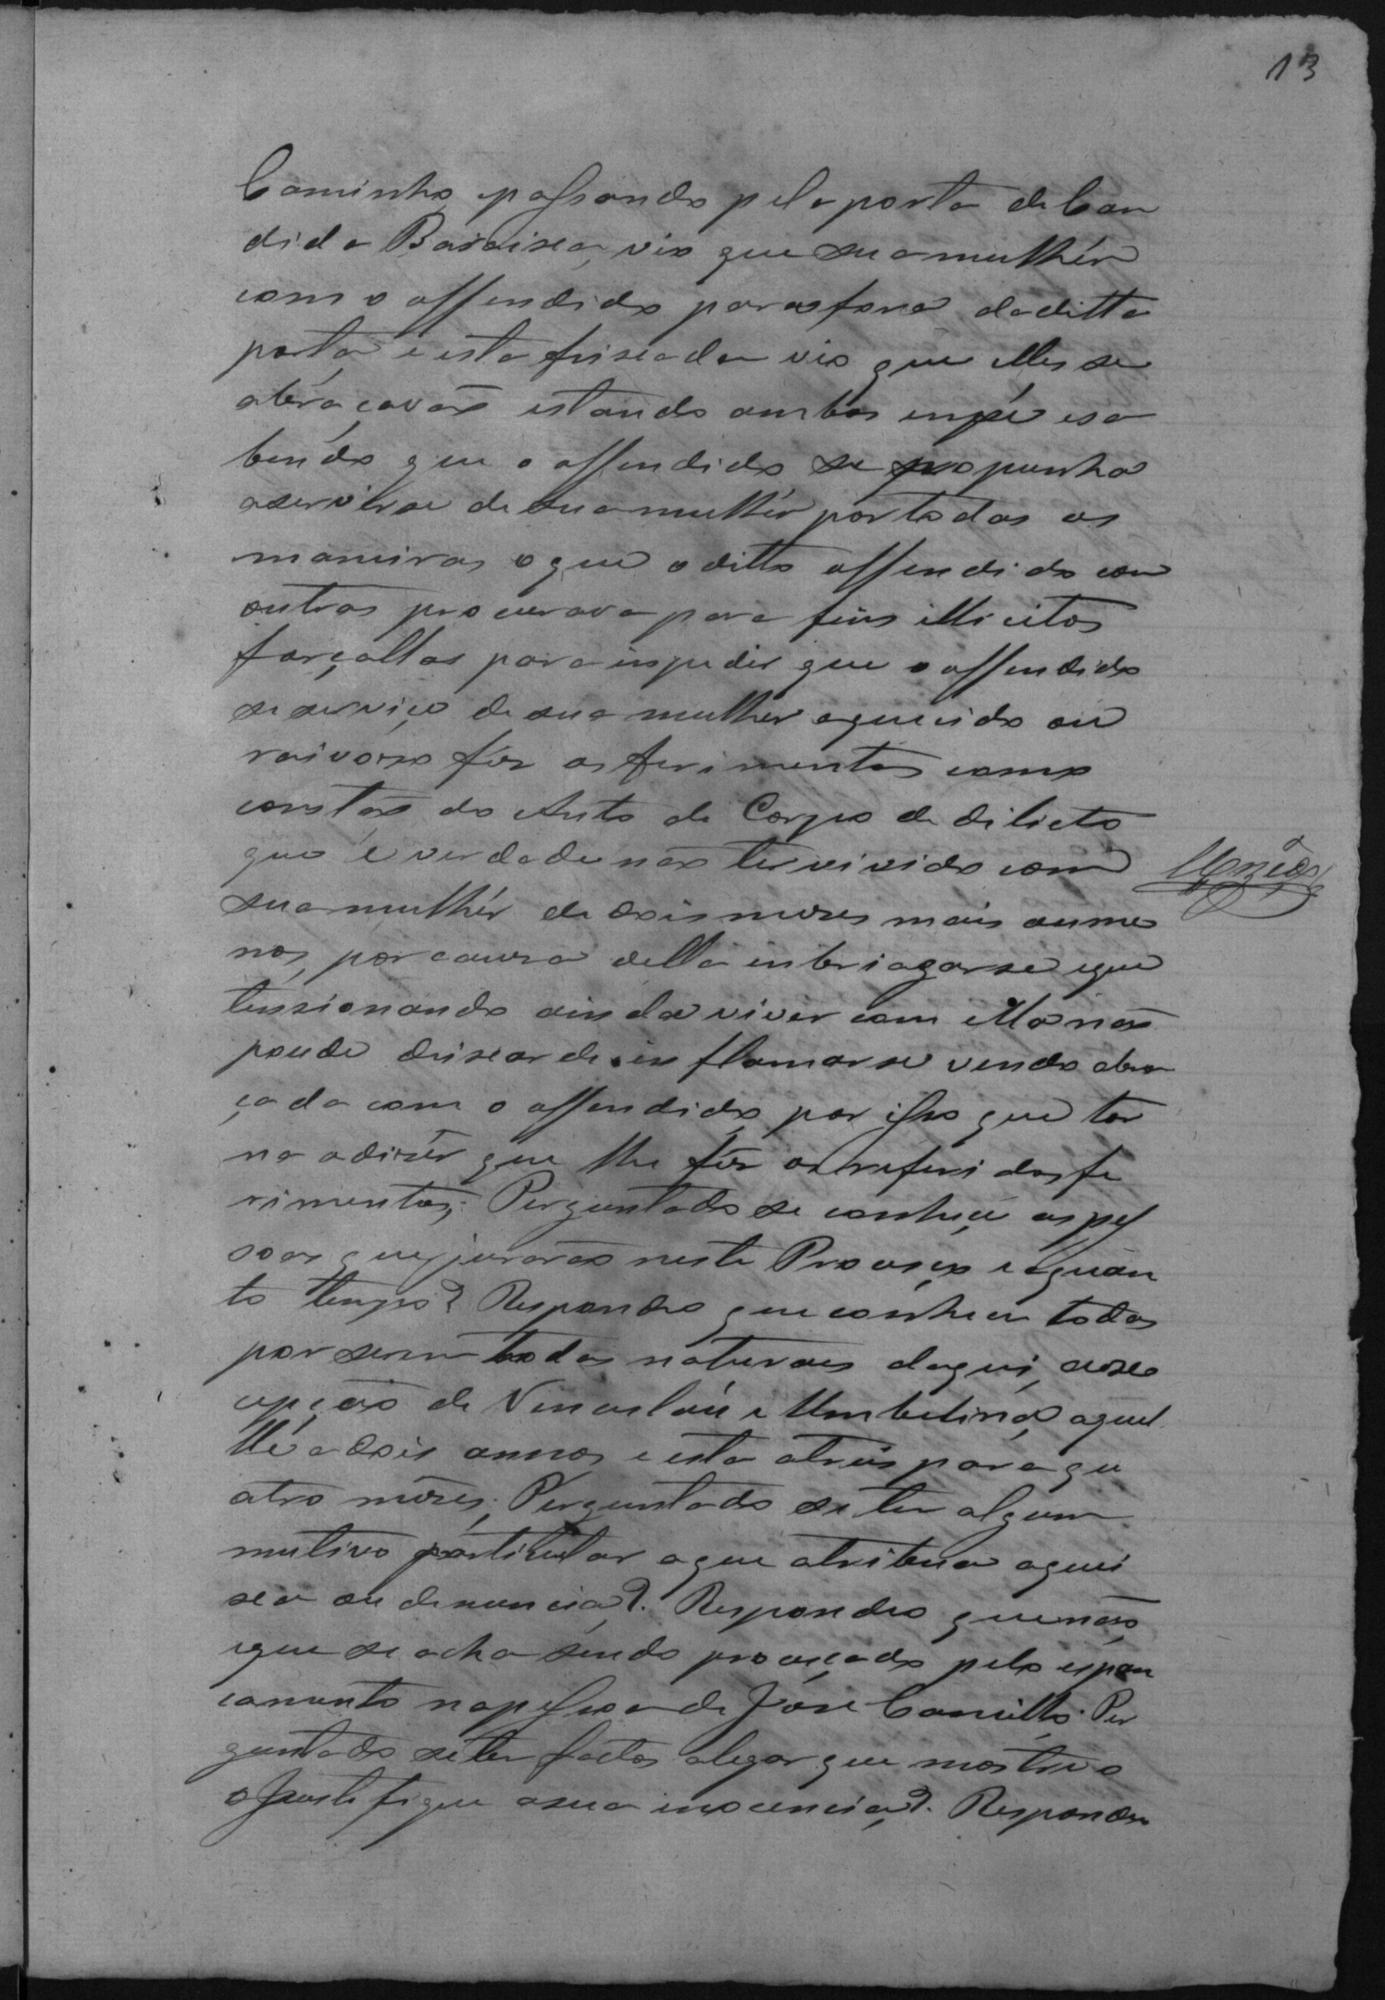 13
Caminho, epassando pela porta de Can
dida Baraisca, vio que sua mulhér
com o offendido para fora da ditta
porta, e esta friscada vio que elles se
abraçavão estando ambos empé e sa
bendo que o offendido se propunha
a servirse de sua mulhér por todas as
maneiras o que o ditto offendido com
outras procurava para fins illicitos
forçallas para impedir que o offendido
se serviço de sua mulher aquecido ou
raivoso fés os ferimentos como
constão do Auto de Corpo de dilicto
que é verdade não ter vivido com
sua mulhér de dois meses mais ou me
nos, por causa della imbriagarse e que
tensionando ainda viver com ella não
poude deiscar de in flamarse vendo abra
çada com o offendido, por isso que tor
na a dizêr que lhe fés os referidos fe
rimentos; Perguntado se conhece as pes
soas que jurarão neste Processo e a quan
to tempo? Respondeo que conhece todas
por serem todas naturaes daqui, a exce
cupção de Vencesláu e Umbelina, aquel
lle a dois annos e esta a treis para qu
atro mêses; Perguntado se tem algum
mutivo particular a que atribua a quei
sca ou denuncia?. Respondeo que não,
e que se acha sendo processado pelo espan
camento na pessoa de José Camillo. Per
guntado se tem factos alegar que mostre o
o Justifique a sua inocencia?. Respondeo